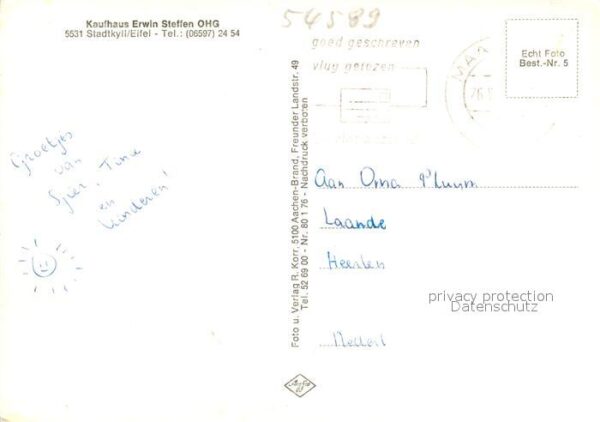 Kaufhaus Erwin Steffen OHG
5531 Stadtkyll/Eifel - Tel.: (06597) 24 54
54589
goed geschreven
vlug gelezen
Echt Foto
Best.-Nr. 5
Groetjes
van
en
kinderen!
Foto u. Verlag R. Korr, 5100 Aachen-Brand, Freunder Landstr. 49
Tel. 52 69 00 - Nr. 80 1 76 - Nachdruck verboten
Aan Oma
Laande
Heerlen
Nederl
privacy protection
Datenschutz
Agfa